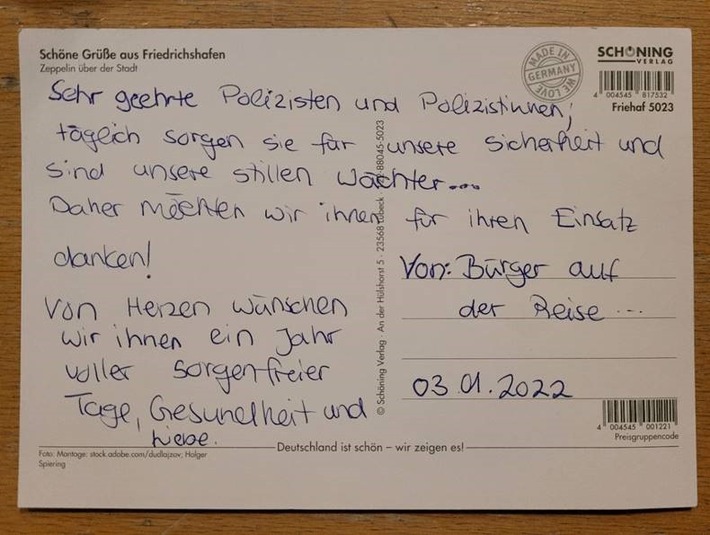 Schöne Grüße aus Friedrichshafen
Zeppelin über der Stadt
MADE IN
GERMANY
WE LOVE
SCHÖNING
VERLAG
4 004545 817532
Friehaf 5023
Sehr geehrte Polizisten und Polizistinnen,
täglich sorgen sie für unsere Sicherheit und
sind unsere stillen Wächter...
Daher möchten wir ihnen für ihren Einsatz
danken!
Von Herzen wünschen
wir ihnen ein Jahr
voller sorgenfreier
Tage, Gesundheit und
Liebe.
© Schöning Verlag · An der Hülshorst 5 · 23568 Lübeck · 88045-5023
Von: Bürger auf
der Reise...
03.01.2022
4 004545 001221
Preisgruppencode
Deutschland ist schön – wir zeigen es!
Foto: Montage: stock.adobe.com/dudlajzov; Holger
Spiering